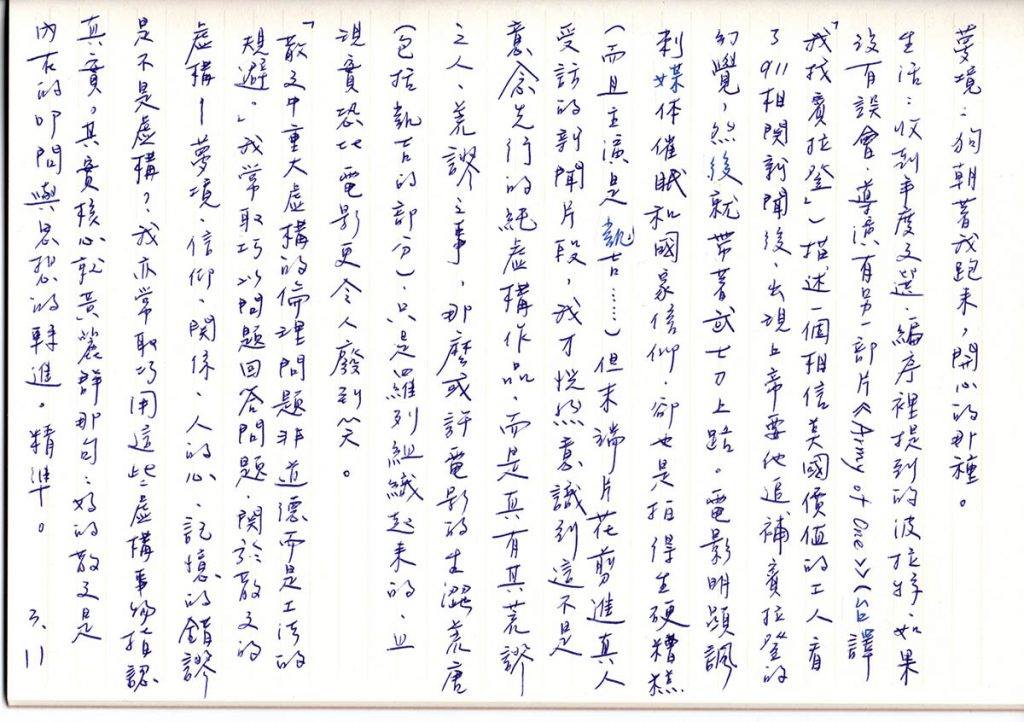 夢境：狗朝著我跑來，開心的那種。
生活：收到年度文選．編序裡提到的波拉特．如果
沒有誤會．導演有另一部片《Army of One》（台譯
「我找賓拉登」）描述一個相信美國價值的工人看
了911相關新聞後、出現上帝要他追捕賓拉登的
幻覺，然後就帶著武士刀上路。電影明顯諷
刺媒体催眠和國家信仰．卻也是拍得生硬糟糕
（而且主演是 凱吉……）但末端片花剪進真人
受訪的新聞片段，我才恍然意識到這不是
意念先行的純虛構作品，而是真有其荒謬
之人、荒謬之事，那麼或許電影的生澀荒唐
（包括凱吉的部分），只是羅列組織起來的，且
現實恐比電影更令人廢到笑。
「散文中重大虛構的倫理問題非道德而是工法的
規避。」我常取巧以問題回答問題．關於散文的
虛構－夢境、信仰、関係、人的心、記憶的錯謬
是不是虛構？我亦常取巧用這些虛構事物指認
真實。其實核心就黃麗群那句：好的散文是
內在的叩問與思想的轉進。精準。 3、11